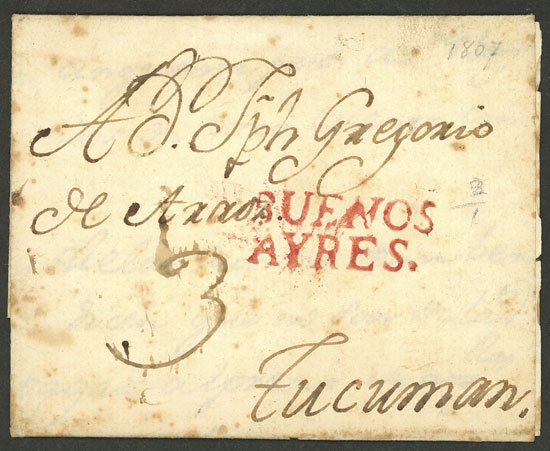 1807
A D.n Jph Gregorio
de Araoz.
BUENOS
AYRES.
3
Tucuman.